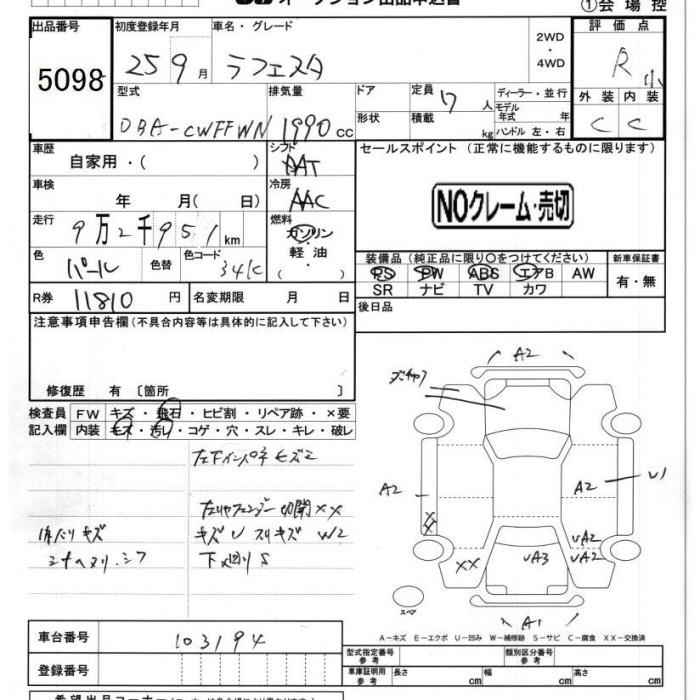 オークション出品申込書
①会場控
出品番号 初度登録年月 車名・グレード 2WD・4WD 評価点
5098 25 9月 ラフェスタ R
型式 排気量 ドア 定員 7人 ディーラー・並行 外装 内装
DBA-CWFFWN 1990 cc 形状 積載 kg モデル年式 年 C C
ハンドル 左・右
車歴 自家用・( ) シフト AAT セールスポイント (正常に機能するものに限ります)
車検 年 月( 日) 冷房 AAC
NOクレーム・売切
走行 9万2千951km 燃料 ガソリン・軽油・( )
色 パール 色替 色コード 34K
装備品 (純正品に限り○をつけてください) 新車保証書
PS PW ABS エアB AW 有・無
SR ナビ TV カワ
R券 11810 円 名変期限 月 日 後日品
注意事項申告欄(不具合内容等は具体的に記入して下さい)
修復歴 有 〔箇所 〕
検査員 FW キズ・飛石・ヒビ割・リペア跡・×要
記入欄 内装 キズ・汚レ・コゲ・穴・スレ・キレ・破レ
切開 XX
キズU スリキズ W2
下廻りS
A2
A2
A2
U1
XX
UA2
UA2
XX
UA3
A1
スペア
A-キズ E-エクボ U-凹み W-補修跡 S-サビ C-腐食 XX-交換済
車台番号 103194
登録番号
型式指定番号 参考 類別区分番号 参考
車庫証明用 参考 長さ cm 幅 cm 高さ cm